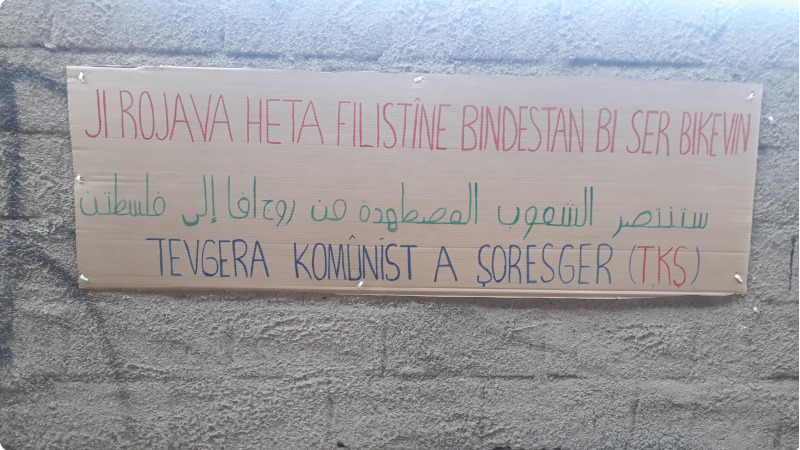 JI ROJAVA HETA FILISTÎNE BINDESTAN BI SER BIKEVIN
ستنتصر الشعوب المصطهدة من روج افا إلى فلسطين
TEVGERA KOMÛNÎST A ŞORESGER (TKŞ)